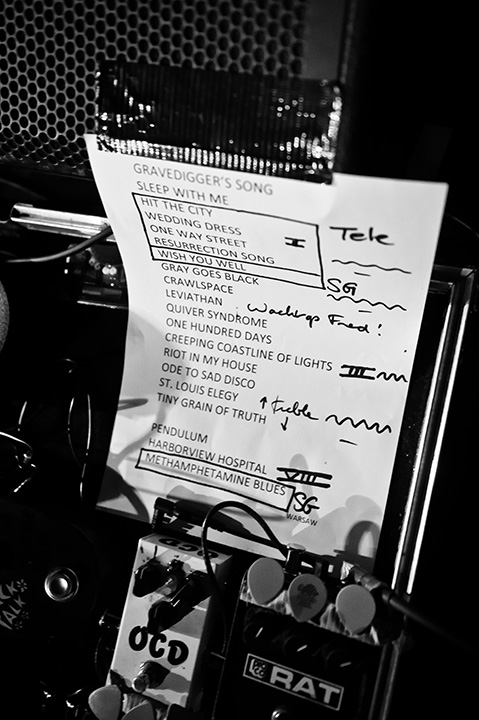 GRAVEDIGGER'S SONG
SLEEP WITH ME
HIT THE CITY
WEDDING DRESS
ONE WAY STREET
RESURRECTION SONG I
WISH YOU WELL
Tele
GRAY GOES BLACK
SG
CRAWLSPACE
LEVIATHAN
QUIVER SYNDROME
ONE HUNDRED DAYS
CREEPING COASTLINE OF LIGHTS III
RIOT IN MY HOUSE
ODE TO SAD DISCO
ST. LOUIS ELEGY
TINY GRAIN OF TRUTH ↑ treble ↓
PENDULUM
HARBORVIEW HOSPITAL VIII
METHAMPHETAMINE BLUES SG
WARSAW
OCD
OCD
RAT
TALK